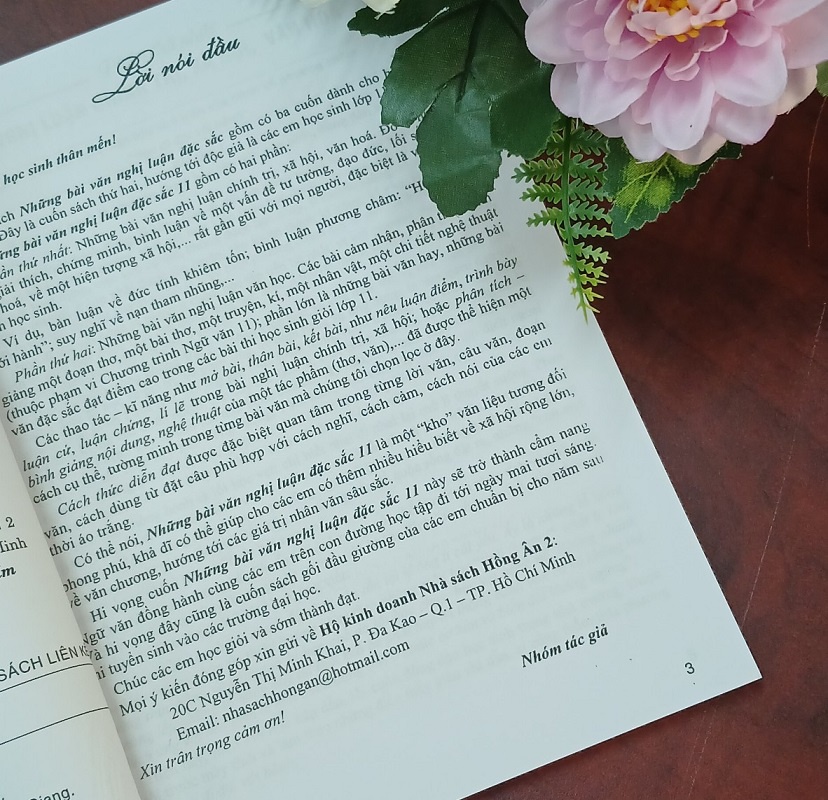 Lời nói đầu
học sinh thân mến!
Những bài văn nghị luận đặc sắc gồm có ba cuốn dành cho
Đây là cuốn sách thứ hai, hướng tới độc giả là các em học sinh lớp
bài văn nghị luận đặc sắc 11 gồm có hai phần:
thứ nhất: Những bài văn nghị luận chính trị, xã hội, văn hoá.
giải thích, chứng minh, bình luận về một vấn đề tư tưởng, đạo đức, lối
hoá, về một hiện tượng xã hội,... rất gần gũi với mọi người, đặc biệt là
học sinh.
Ví dụ, bàn luận về đức tính khiêm tốn; bình luận phương châm:
hành"; suy nghĩ về nạn tham nhũng,...
Phần thứ hai: Những bài văn nghị luận văn học. Các bài cảm nhận,
giảng một đoạn thơ, một bài thơ, một truyện, kí, một nhân vật, một chi tiết nghệ thuật
(thuộc phạm vi Chương trình Ngữ văn 11); phần lớn là những bài văn hay, những bài
văn đặc sắc đạt điểm cao trong các bài thi học sinh giỏi lớp 11.
Các thao tác – kĩ năng như mở bài, thân bài, kết bài, như nêu luận điểm, trình bày
luận cứ, luận chứng, lí lẽ trong bài nghị luận chính trị, xã hội; hoặc phân tích –
bình giảng nội dung, nghệ thuật của một tác phẩm (thơ, văn),... đã được thể hiện một
cách cụ thể, tường minh trong từng bài văn mà chúng tôi chọn lọc ở đây.
Cách thức diễn đạt được đặc biệt quan tâm trong từng lời văn, câu văn, đoạn
văn, cách dùng từ đặt câu phù hợp với cách nghĩ, cách cảm, cách nói của các em
thời áo trắng.
Có thể nói, Những bài văn nghị luận đặc sắc 11 là một "kho" văn liệu tương đối
phong phú, khả dĩ có thể giúp cho các em có thêm nhiều hiểu biết về xã hội rộng lớn,
về văn chương, hướng tới các giá trị nhân văn sâu sắc.
Hi vọng cuốn Những bài văn nghị luận đặc sắc 11 này sẽ trở thành cẩm nang
Ngữ văn đồng hành cùng các em trên con đường học tập đi tới ngày mai tươi sáng.
và hi vọng đây cũng là cuốn sách gối đầu giường của các em chuẩn bị cho năm sau
thi tuyển sinh vào các trường đại học.
Chúc các em học giỏi và sớm thành đạt.
Mọi ý kiến đóng góp xin gửi về Hộ kinh doanh Nhà sách Hồng Ân 2:
20C Nguyễn Thị Minh Khai, P. Đa Kao – Q.1 – TP. Hồ Chí Minh
Email: nhasachhongan@hotmail.com
Xin trân trọng cảm ơn!
Nhóm tác giả
3
2
SÁCH LIÊN